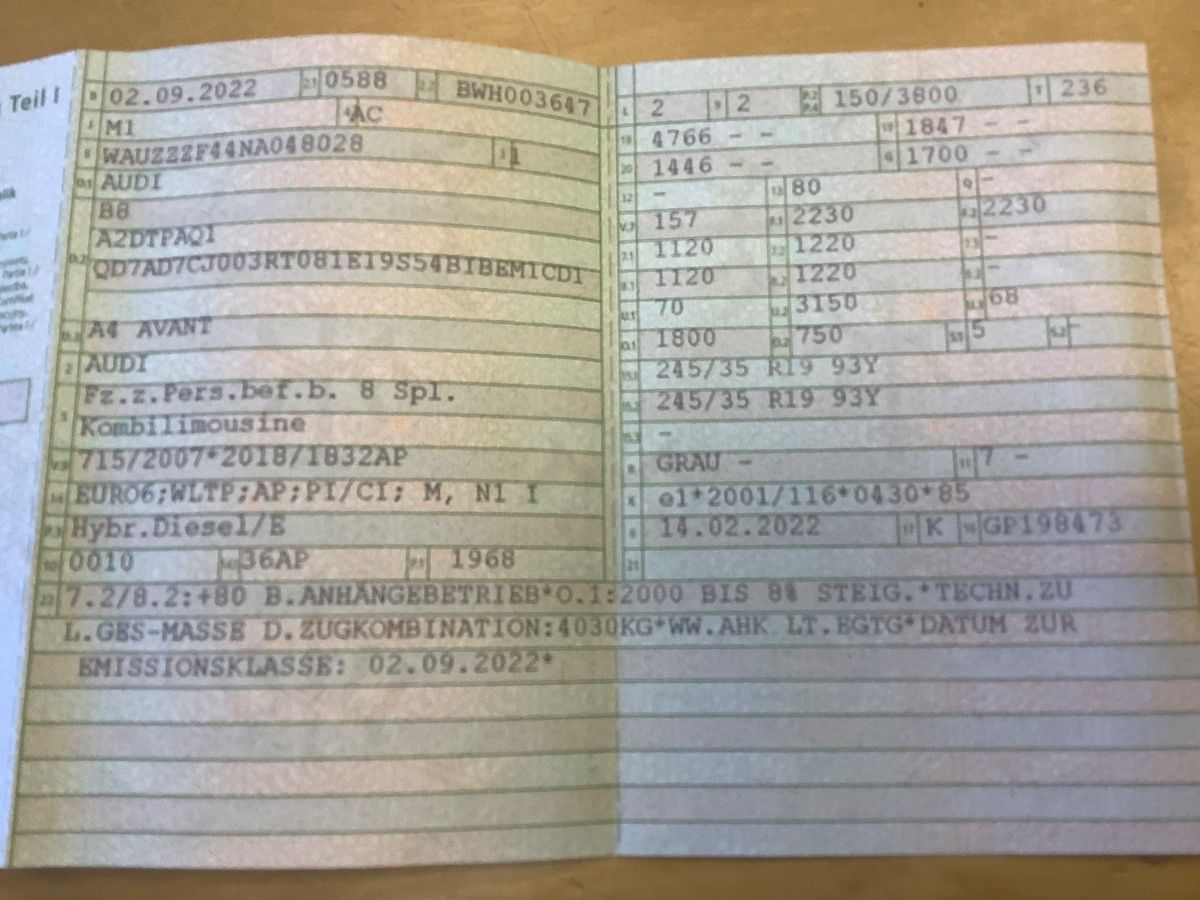 Teil I
B 02.09.2022 2.1 0588 2.2 BWH003647
J M1 4 AC
E WAUZZZF44NA048028 3 1
D.1 AUDI
B8
D.2 A2DTPAQ1
QD7AD7CJ003RT081E19S54BIBEM1CD1
D.3 A4 AVANT
2 AUDI
5 Fz.z.Pers.bef.b. 8 Spl.
Kombilimousine
V.9 715/2007*2018/1832AP
14 EURO6;WLTP;AP;PI/CI; M, N1 I
P.3 Hybr.Diesel/E
10 0010 14.1 36AP P.1 1968
L 2 9 2 P.2 P.4 150/3800 T 236
18 4766 - - 19 1847 - -
20 1446 - - G 1700 - -
12 - 13 80 Q -
V.7 157 F.1 2230 F.2 2230
7.1 1120 7.2 1220 7.3 -
8.1 1120 8.2 1220 8.3 -
U.1 70 U.2 3150 U.3 68
O.1 1800 O.2 750 S.1 5 S.2 -
15.1 245/35 R19 93Y
15.2 245/35 R19 93Y
15.3 -
R GRAU - 11 7 -
K e1*2001/116*0430*85
6 14.02.2022 17 K 16 GP198473
21
22 7.2/8.2:+80 B.ANHÄNGEBETRIEB*O.1:2000 BIS 8% STEIG.*TECHN.ZU
L.GES-MASSE D.ZUGKOMBINATION:4030KG*WW.AHK LT.EGTG*DATUM ZUR
EMISSIONSKLASSE: 02.09.2022*